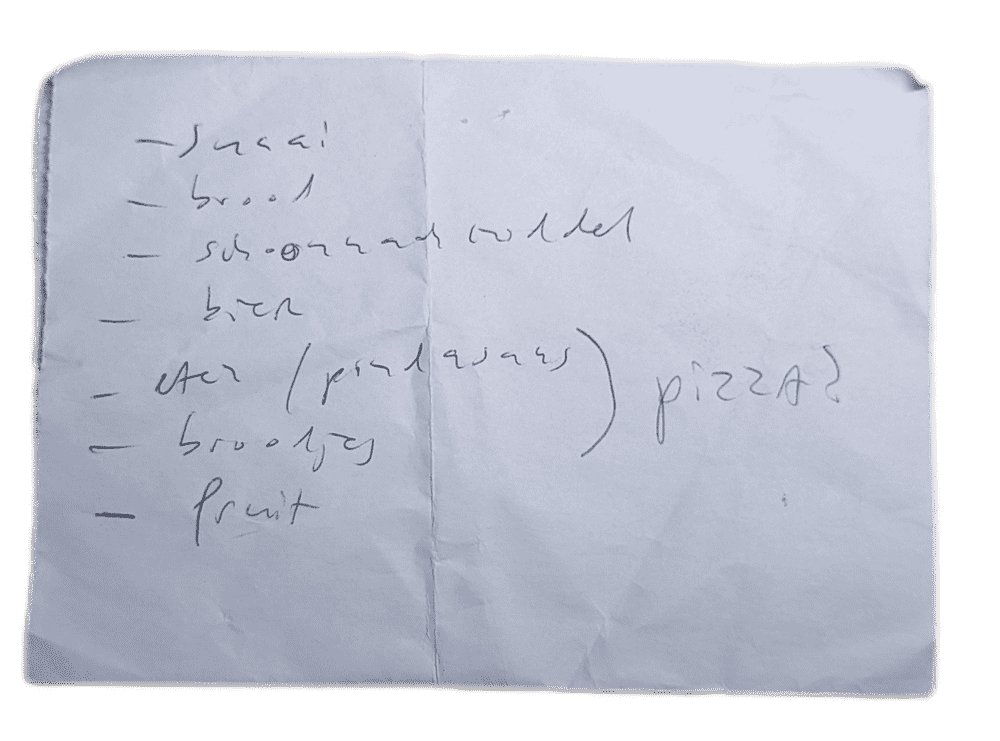 - snaai
- brood
- schoonmaakmiddel
- bier
- eten (pindasaus) pizza?
- broodjes
- fruit